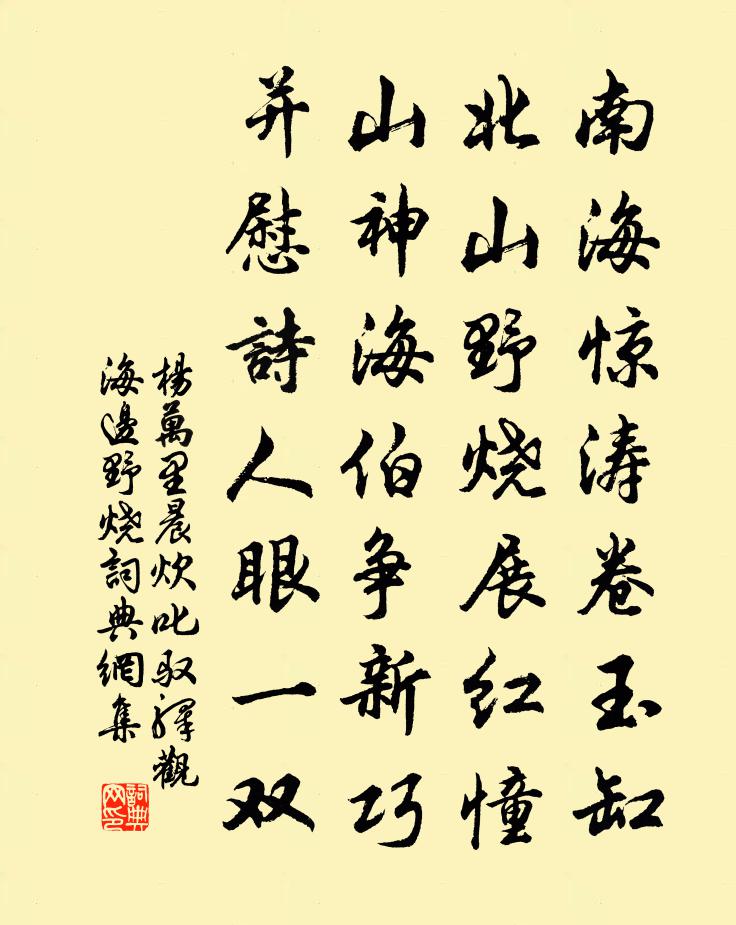 南海惊涛卷玉缸
北山野烧展红憧
山神海伯争新巧
并慰詩人眼一双
楊萬里晨炊叱驭驛觀
海邊野烧詞典網集
詞典網印